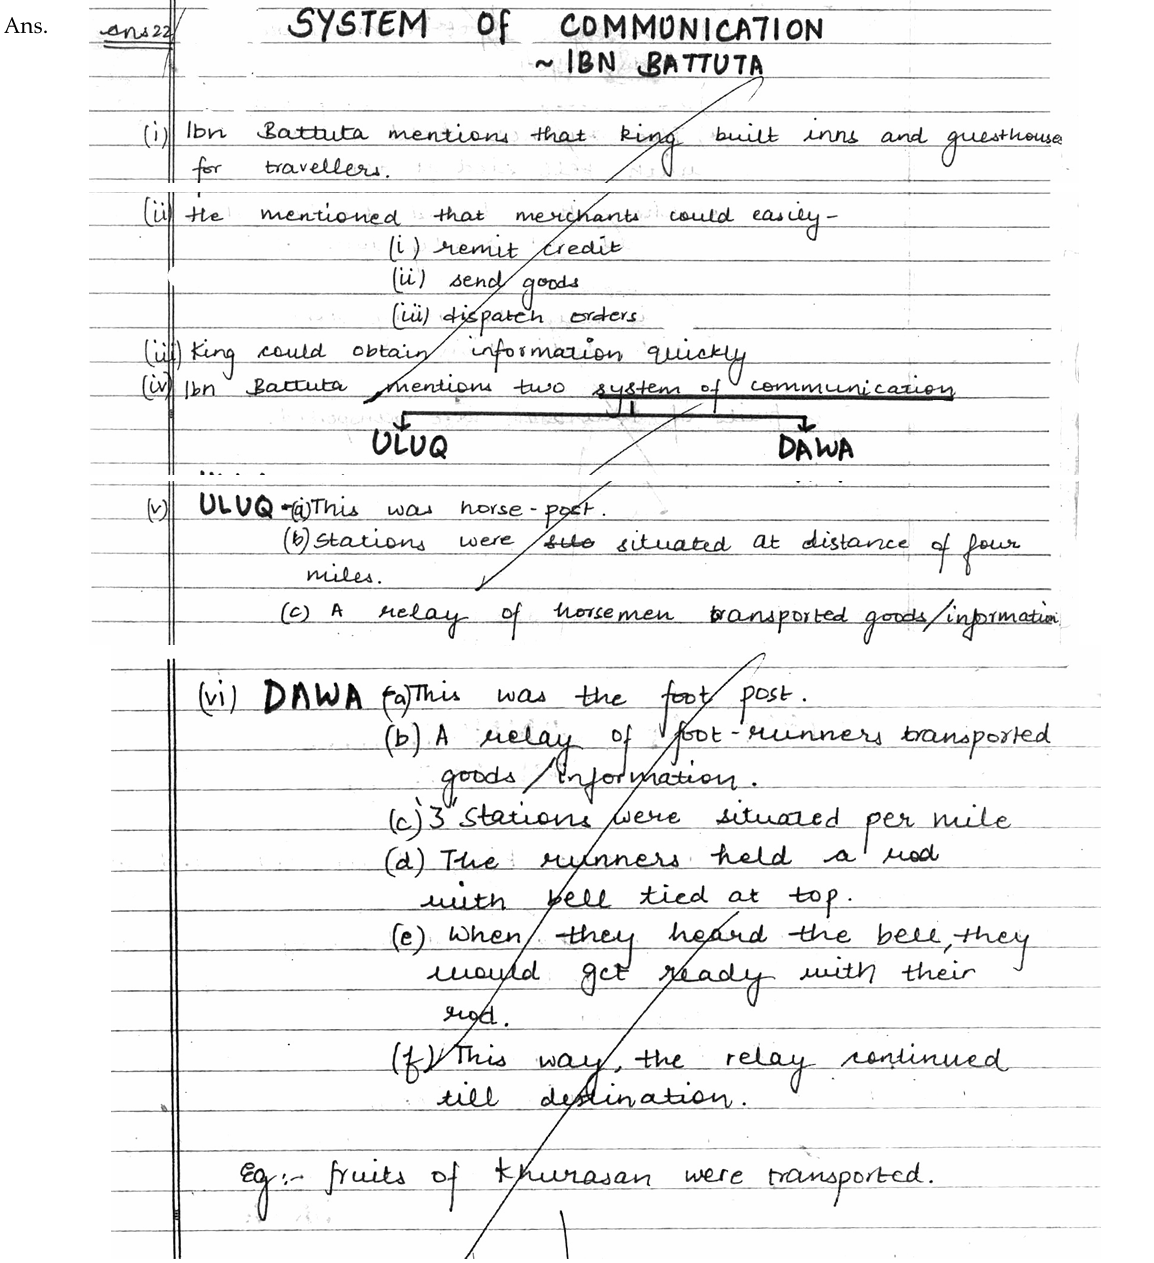 Ans.
Ans 22
SYSTEM Of COMMUNICATION
~ IBN BATTUTA
(i) Ibn Battuta mentions that king built inns and guesthouses
for travellers.
(ii) He mentioned that merchants could easily -
(i) remit credit
(ii) send goods
(iii) dispatch orders
(iii) King could obtain information quickly
(iv) Ibn Battuta mentions two system of communication
ULUQ DAWA
(v) ULUQ - (a) This was horse - post.
(b) Stations were situated at distance of four
miles.
(c) A relay of horsemen transported goods/information
(vi) DAWA (a) This was the foot post.
(b) A relay of foot-runners transported
goods/information.
(c) 3 Stations were situated per mile
(d) The runners held a rod
with bell tied at top.
(e) When they heard the bell, they
would get ready with their
rod.
(f) This way, the relay continued
till destination.
Eg:- fruits of Khurasan were transported.